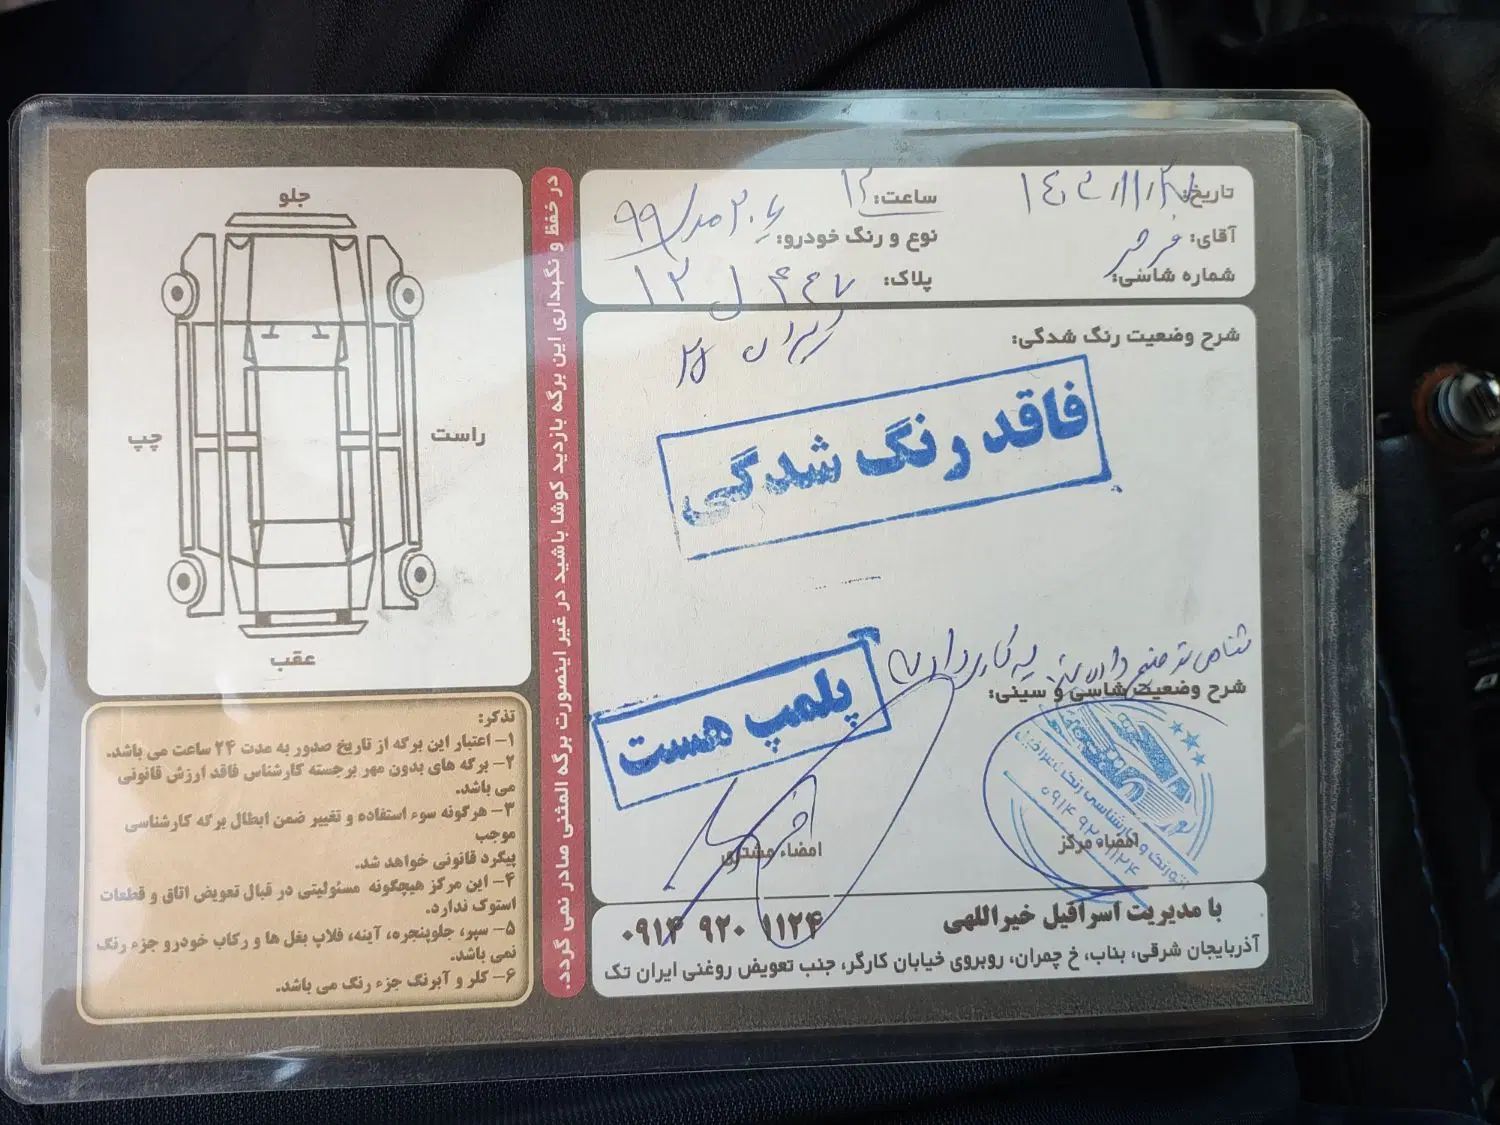 تاریخ:
ساعت: ۱۲
آقای:
نوع و رنگ خودرو: ۲۰۶ مدل ۹۹
شماره شاسی:
پلاک:
ایران
شرح وضعیت رنگ شدگی:
فاقد رنگ شدگی
پلمپ هست
شرح وضعیت شاسی و سینی:
امضاء مرکز
امضاء مشتری
با مدیریت اسرافیل خیراللهی
۰۹۱۴ ۹۲۰ ۱۱۲۴
آذربایجان شرقی، بناب، خ چمران، روبروی خیابان کارگر، جنب تعویض روغنی ایران تک
در حفظ و نگهداری این برگه بازدید کوشا باشید در غیر اینصورت برگه المثنی صادر نمی گردد.
جلو
راست
چپ
عقب
تذکر:
۱- اعتبار این برگه از تاریخ صدور به مدت ۲۴ ساعت می باشد.
۲- برگه های بدون مهر برجسته کارشناس فاقد ارزش قانونی
می باشد.
۳- هرگونه سوء استفاده و تغییر ضمن ابطال برگه کارشناسی
موجب
پیگرد قانونی خواهد شد.
۴- این مرکز هیچگونه مسئولیتی در قبال تعویض اتاق و قطعات
استوک ندارد.
۵- سپر، جلوپنجره، آینه، فلاپ بغل ها و رکاب خودرو جزء رنگ
نمی باشد.
۶- کلر و آبرنگ جزء رنگ می باشد.